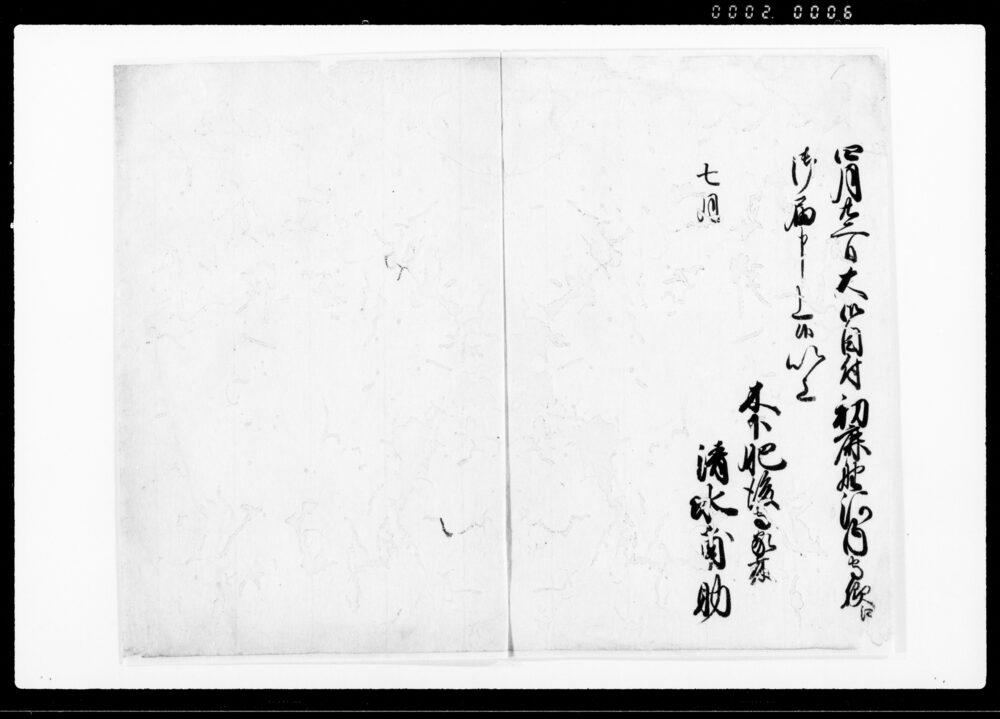 0002 0006
四月廿二日大御目付初鹿野河内守様江
御届申上候以上
七月
木下肥後守家来
清水蘭助